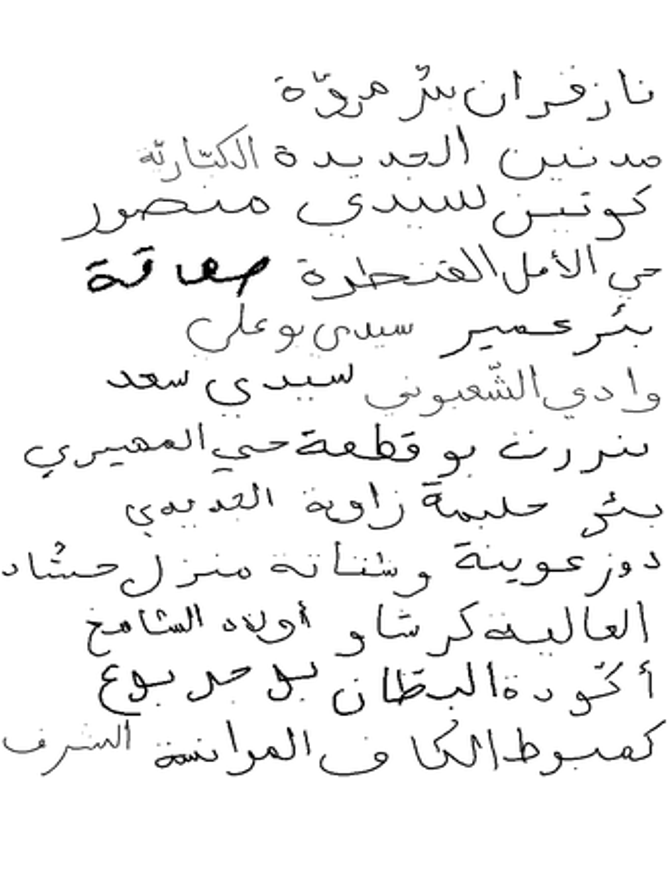 نازفران بئر مروّة
مدنين الجديدة الكتاريّة
كوتين سيدي منصور
حي الأمل القنطرة صفاقة
بئر عمير سيدي بوعلي
وادي الشّعبوني سيدي سعد
بنزرت بوقطعة حي المهيري
بئر حليمة زاوية الجديدي
دوز عوينة وشتاتة منزل حشاد
العالية كرشاو أولاد الشامخ
أكّودة البطّان بوجربوع
كمبوط الكاف المرانسة الشرف